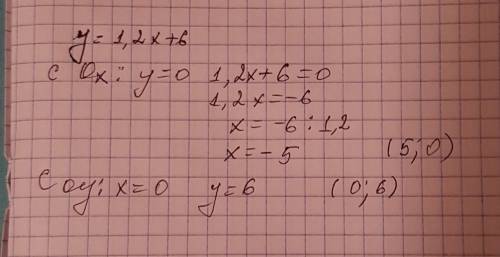 y = 1,2x+6
С Ox: y=0 1,2x+6=0
1,2x=-6
x= -6:1,2
x= -5 (5;0)
С oy: x=0 y=6 (0;6)